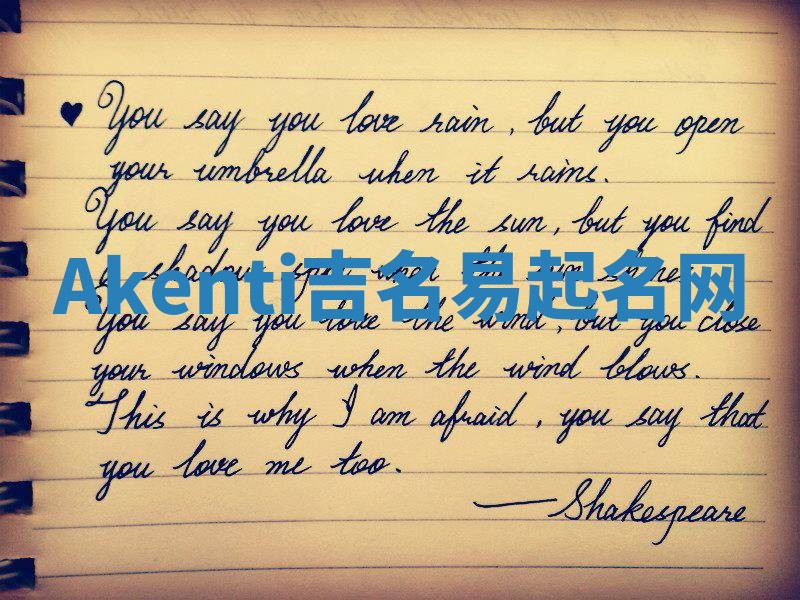 ♥ You say you love rain, but you open
your umbrella when it rains.
You say you love the sun, but you find
a shadow spot when the sun shines
Akenti吉名易起名网
You say you love the wind, but you close
your windows when the wind blows.
This is why I am afraid, you say that
you love me too.
—Shakespeare